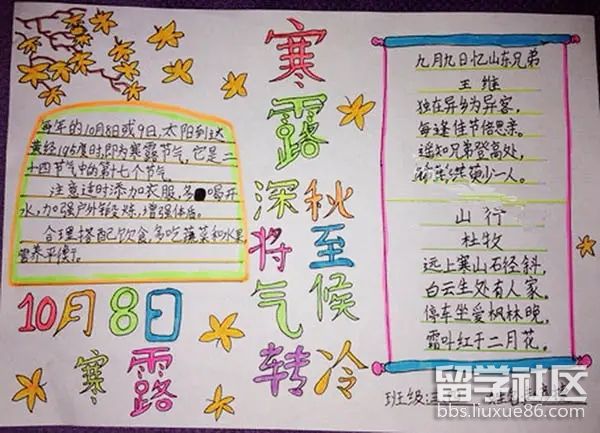 每年的10月8日或9日,太阳到达
黄经195度时,即为寒露节气,它是二
十四节气中的第十七个节气。
注意适时添加衣服,多喝开
水,加强户外锻炼,增强体质。
合理搭配饮食,多吃蔬菜和水果,
营养平衡。
10月8日
寒露
寒露
深秋
将至
气候
转冷
九月九日忆山东兄弟
王维
独在异乡为异客,
每逢佳节倍思亲。
遥知兄弟登高处,
少一人。
山行
杜牧
远上寒山石径斜,
白云生处有人家。
停车坐爱枫林晚,
霜叶红于二月花。
班级
留学社区
bbs.liuxue86.com